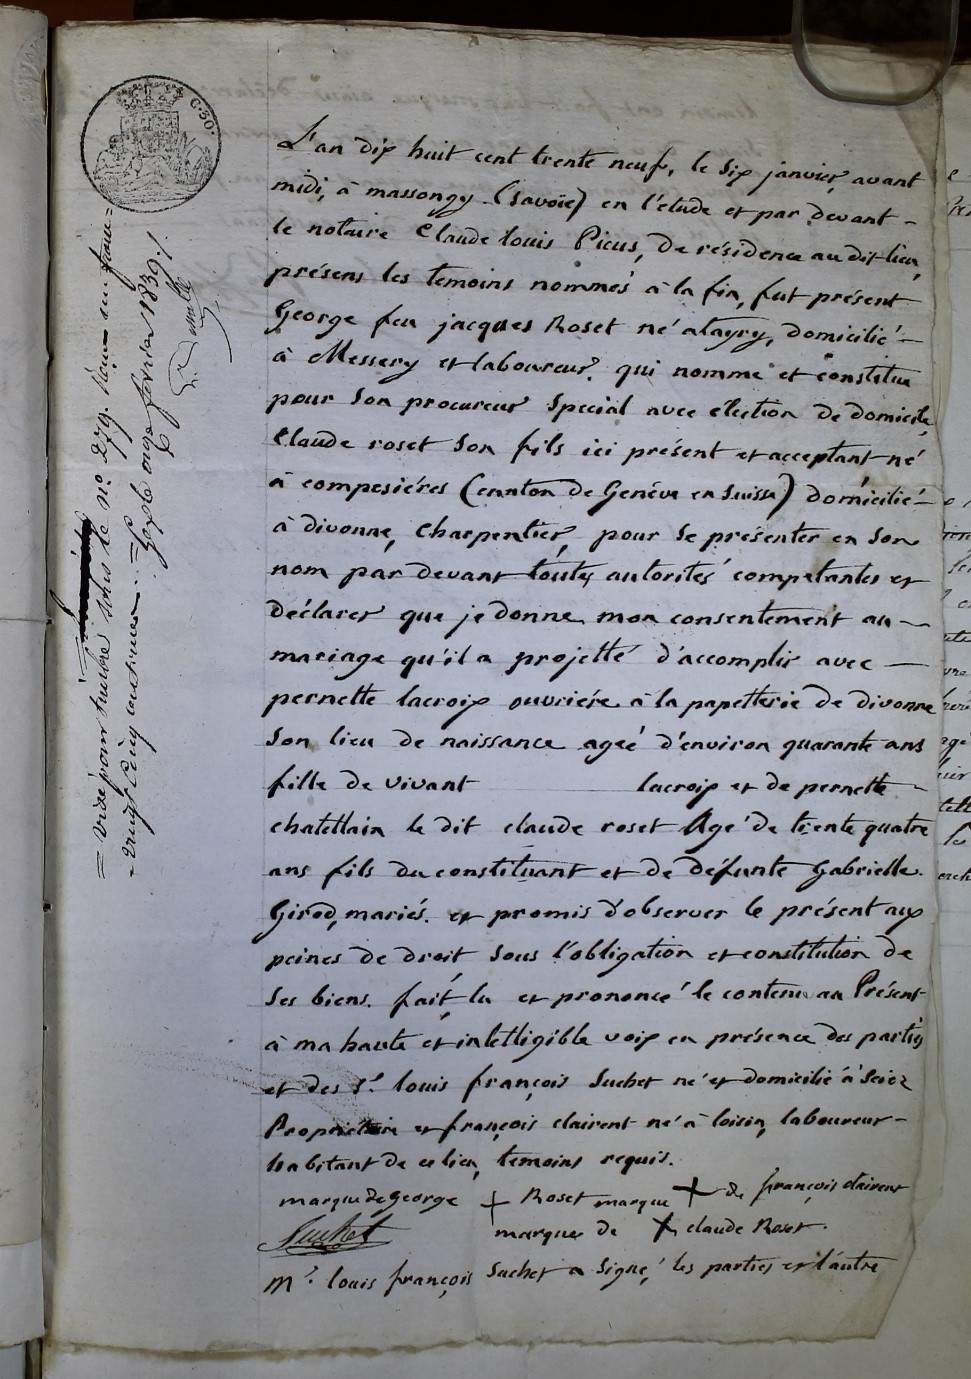 C. 50.
L'an dix huit cent trente neuf, le six janvier, avant
midi, à massongy (Savoïe) en l'etude et par devant -
le notaire Claude Louis Picus, de résidence au dit lieu,
présens les temoins nommés à la fin, fut présent
George feu jacques Roset né a tagry, domicilié -
à Messery et laboureur. qui nomme et constitue
pour son procureur spécial avec élection de domicile,
Claude roset son fils ici présent et acceptant né
à compesiéres (cannton de Genéve en Suisse) domicilié -
à divonne, Charpentier, pour se présenter en son
nom par devant toutes autorités compétantes et
déclarer que je donne mon consentement au -
mariage qu'il a projetté d'accomplir avec -
pernette lacroix ouvriére à la papetterie de divonne
son lieu de naissance ageé d'environ quarante ans
fille de vivant lacroix et de pernette -
chatellain le dit claude roset Agé de trente quatre
ans fils du constituant et de défunte Gabrielle
Girod, mariés. et promis d'observer le présent aux
peines de droit sous l'obligation et constitution de
ses biens. fait, lu et prononcé le contenu au Présent
à ma haute et intelligible voix en présence des parties
et des Sr. louis françois Suchet né et domicilié à Sciez
Propriétaire et françois clairent né à loisin, laboureur -
habitant de ce lieu, temoins requis.
marque de George + Roset marque + de françois clairent
Suchet marque de + claude Roset.
Mr. louis françois Suchet a signé, les parties et l'autre
= visé pour timbre sous le no. 279. Reçu un franc =
- vingt cinq centimes. =
Gex le onze février 1839 /.